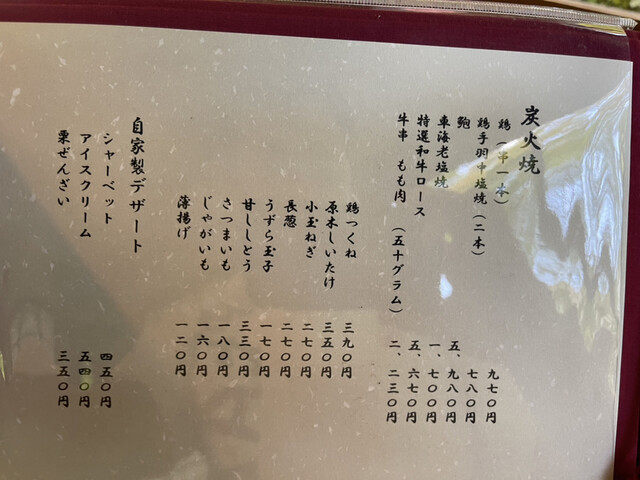 炭火焼
鶏(串一本) 九七〇円
鶏手羽中塩焼(二本) 七八〇円
鮑 五、九八〇円
車海老塩焼 一、七〇〇円
特選和牛ロース 五、六七〇円
牛串 もも肉 (五十グラム) 二、二三〇円
鶏つくね 三九〇円
原木しいたけ 三五〇円
小玉ねぎ 二七〇円
長葱 二七〇円
うずら玉子 一七〇円
甘ししとう 三三〇円
さつまいも 一八〇円
じゃがいも 一六〇円
薄揚げ 一二〇円
自家製デザート
シャーベット 四五〇円
アイスクリーム 五四〇円
栗ぜんざい 三五〇円